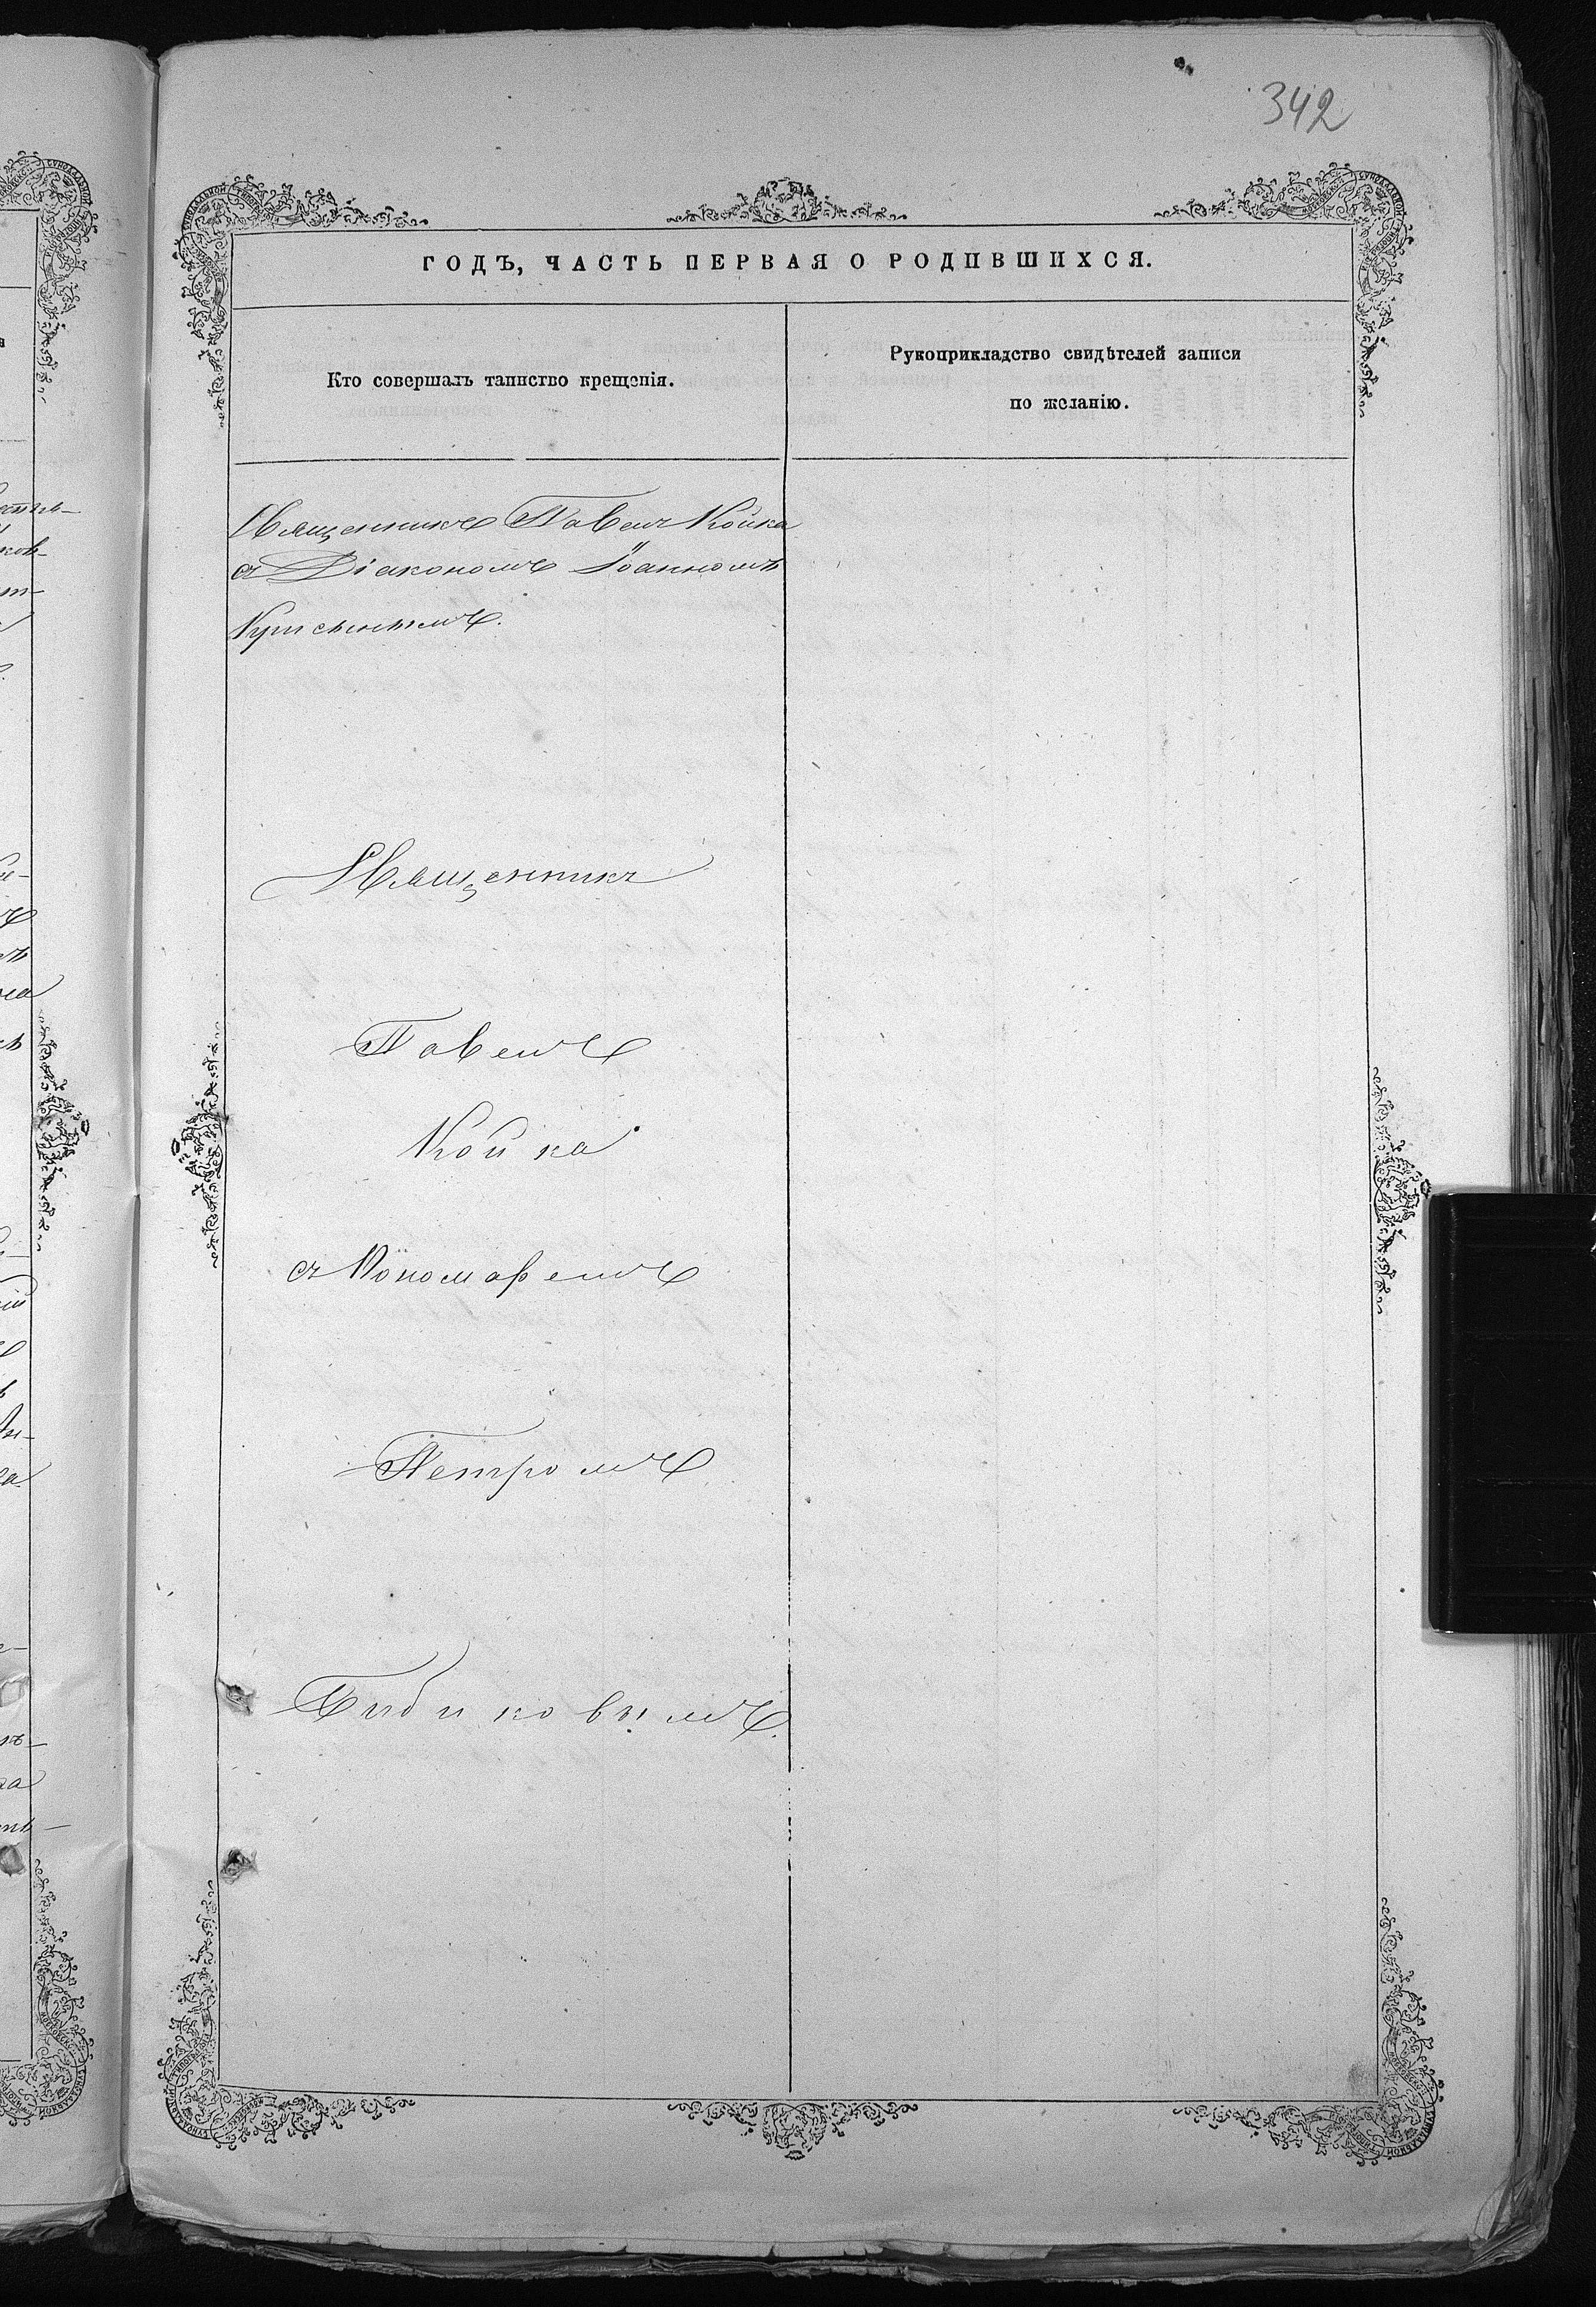 342
ГОДЪ, ЧАСТЬ ПЕРВАЯ О РОДИВШИХСЯ.
Кто совершалъ таинство крещенія.
Рукоприкладство свидѣтелей записи
по желанію.
Священникъ Павелъ Койка
съ Діакономъ Іоанномъ
Священникъ
Павелъ
Койка
съ Пономаремъ
Петромъ
Бибиковымъ.